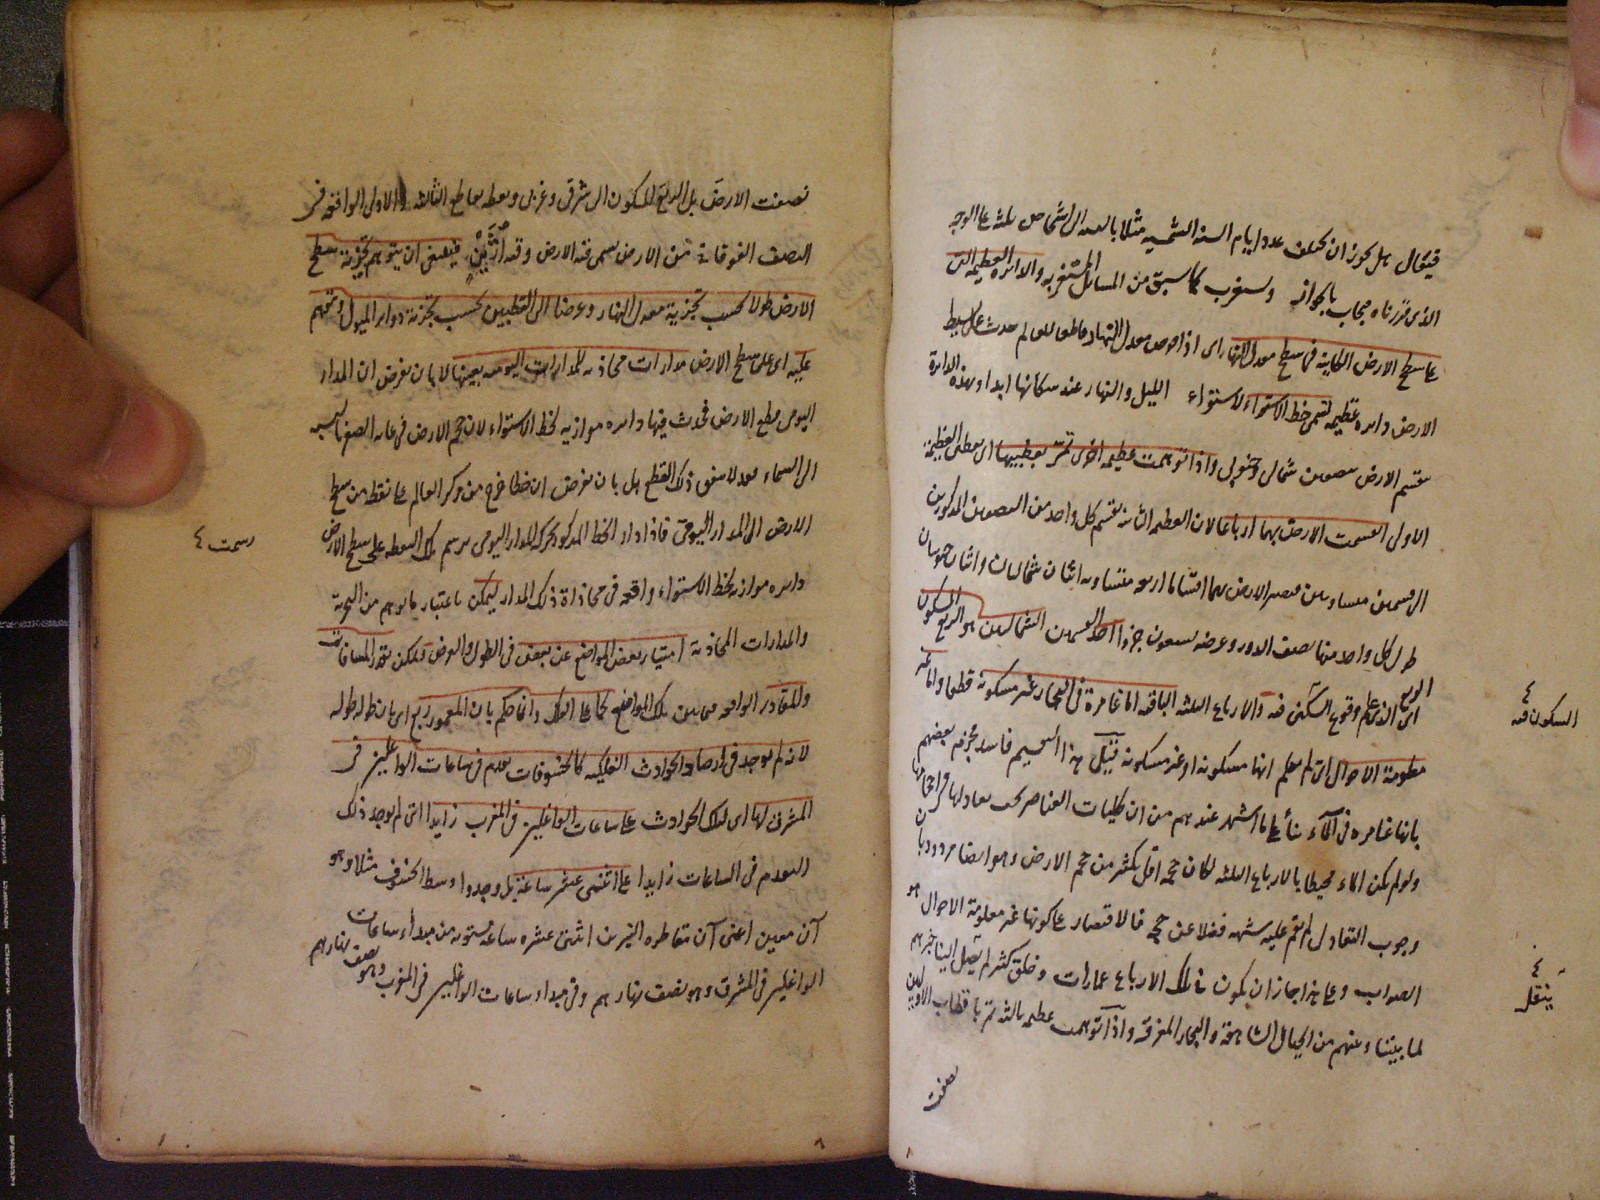 فيقال هل يجوز ان يختلف عدد ايام السنه الشمسيه مثلا بالنسبه الى اشخاص ثلثه على الوجه
الذى قررناه فيجاب بالجواز ويستغرب كما سبق من المسائل المستغربه والدائره العظيمه التى
على سطح الارض الكاينة فى سطح معدل النهار اى اذا فرض معدل النهار قاطعا للعالم حدث على بسيط
الارض دائره عظيمه تسمى خط الاستواء لاستواء الليل والنهار عند سكانها ابدا وبهذه الدائرة
ينقسم الارض بنصفين شمالى وجنوبى واذا توهمت عظيمه اخرى تمر بقطبيها اى بقطبى العظيمه
الاولى انقسمت الارض بهما ارباعا لان العظيمه الثانيه تقسم كل واحد من النصفين المذكورين
الى قسمين متساويين فيصير الارض بهما اقساما اربعه متساويه اثنان شماليان واثنان جنوبيان
طول كل واحد منها نصف الدور وعرضه تسعون جزءا احد القسمين الشماليين هو الربع المسكون
اى الربع الذى علم وقوع السكنى فيه والارباع الثلثه الباقيه اما غامرة فى البحار غير مسكونة قطعا واما غير
معلومة الاحوال اى لم يعلم انها مسكونة او غير مسكونة قيل هذا التعميم فاسد لجزم بعضهم
بانها غامره فى الماء بناء على ما اشتهر عندهم من ان كليات العناصر يجب تعادلها فى احجامها
ولو لم يكن الماء محيطا بالارباع الثلثه لكان حجمه اقل بكثير من حجم الارض وهو ايضا مردود بان
وجوب التعادل لم تقم عليه شبهه فضلا عن حجه فالاقتصار على كونها غير معلومة الاحوال هو
الصواب وعلى هذا جاز ان يكون فى تلك الارباع عمارات وخلق كثير لم يصل الينا خبرهم
لما بيننا وبينهم من الجبال الشاهقة والبحار المغرقه واذا توهمت عظيمه ثالثه تمر باقطاب الاوليين
نصفت
السكون فيه
ينقل
نصفت الارض بل الربع المسكون الى شرقى وغربى ونقطه تقاطع الثالثه والاولى الواقعة فى
النصف الفوقانى من الارض تسمى قبة الارض وقبه اُزَيْن فينبغى ان يتوهم تجزية سطح
الارض طولا بحسب تجزية معدل النهار وعرضا الى القطبين بحسب تجزية دوائر الميول وتتوهم
عليه اى على سطح الارض مدارات محاذيه للمدارات اليوميه بعينها لا بان يفرض ان المدار
اليومى قطع الارض فحدث فيها دائره موازيه لخط الاستواء لان حجم الارض فى غايه الصغر بالنسبه
الى السماء فلا يتفق ذلك القطع بل بان نفرض ان خطا خرج من مركز العالم على نقطه من سطح
الارض الى المدار اليومى فاذا دار الخط المذكور بحركة المدار اليومى يرسم تلك النقطه على سطح الارض
دائره موازيه لخط الاستواء واقعه فى محاذاة ذلك المدار ليمكن باعتبار ما توهم من التجزية
والمدارات المحاذية امتياز بعض المواضع عن بعض فى الطول والعرض ويمكن تقدير المسافات
والمقادير الواقعه فيما بين تلك المواضع كما على الفلك وانما حكم بان المعمور ربع اى بان طوله
لانه لم يوجد فى ارصاد الحوادث الفلكيه كالخسوفات تقدم فى ساعات الواغلين فى
المشرق لها اى لتلك الحوادث على ساعات الواغلين فى المغرب زايدا اى لم يوجد ذلك
التقدم فى الساعات زايدا على اثنتى عشر ساعة بل وجدوا وسط الخسوف مثلا وهو
آن معين اعنى آن مقاطره النيرين اثنتى عشره ساعة مستويه من مبداء ساعات
الواغلين فى المشرق وهو نصف نهارهم وفى مبداء ساعات الواغلين فى المغرب وهو نصف نهارهم
رسمت